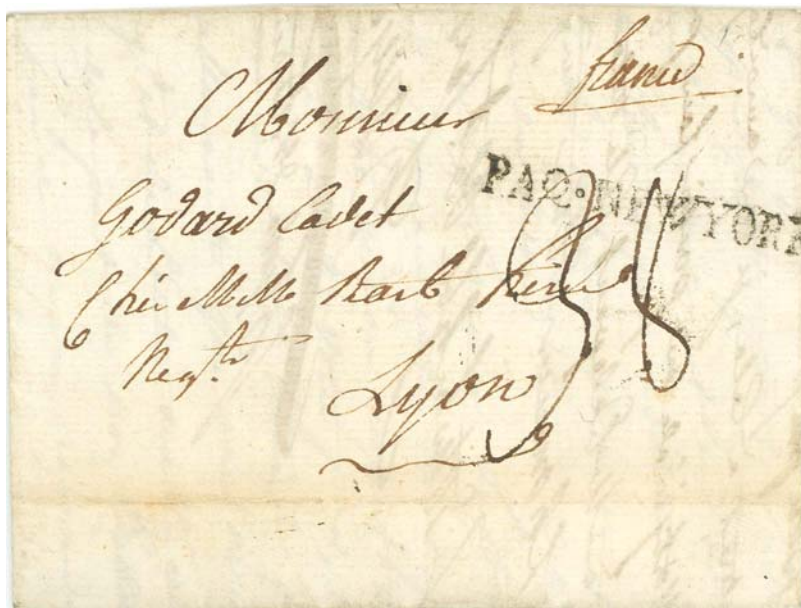 france
Monsieur
PAQ·NEW YORK
Godard Cadet
Chéz MM
38
Negts
Lyon